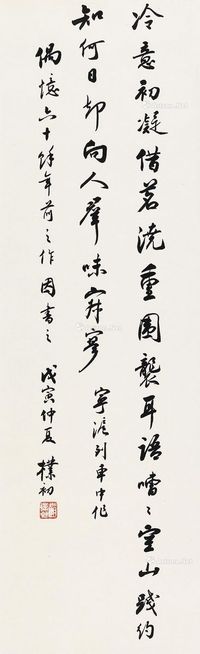 冷意初凝借茗澆重圍襲耳語嘈〻空山踐約
知何日却向人羣味寂寥 寧滬列車中作
偶憶六十餘年前之作因書之 戊寅仲夏 樸初